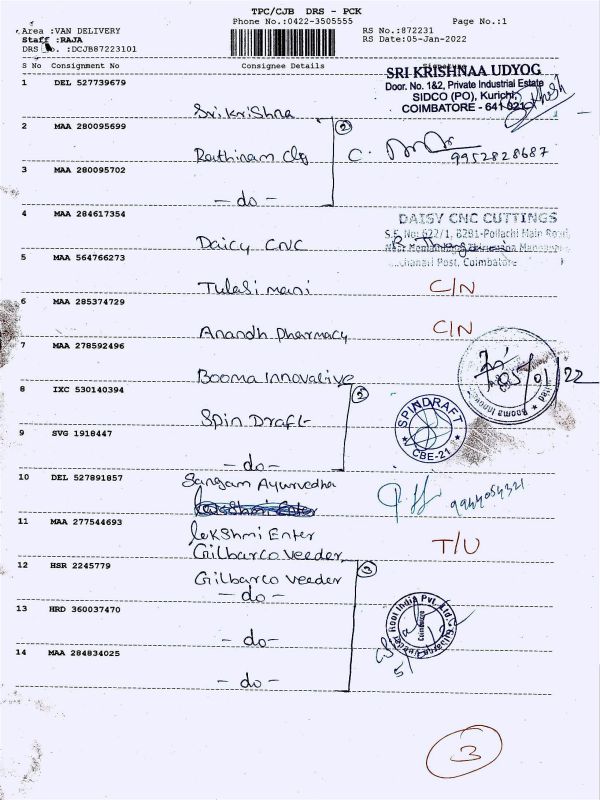 TPC/CJB DRS - PCK
Phone No.:0422-3505555
Page No.:1
Area :VAN DELIVERY
Staff :RAJA
DRS No. :DCJB87223101
RS No.:872231
RS Date:05-Jan-2022
S No Consignment No Consignee Details
1 DEL 527739679
SRI KRISHNAA UDYOG
Door. No. 1&2, Private Industrial Estate
SIDCO (PO), Kurichi,
COIMBATORE - 641 021
Sri Krishna
2 MAA 280095699
Rathinam Clg
2
9952828687
3 MAA 280095702
- do -
4 MAA 284617354
DAISY CNC CUTTINGS
S.F. No: 622/1, Pollachi Main Road,
Post, Coimbatore
Daicy CNC
5 MAA 564766273
Tulasi mani
C/N
6 MAA 285374729
Anandh Pharmacy
C/N
7 MAA 278592496
Booma Innovative
05/01/22
8 IXC 530140394
Spin Draft
2
SPINDRAFT
CBE-21
9 SVG 1918447
- do -
10 DEL 527891857
Sangam Ayurvedha
9944054321
11 MAA 277544693
lekshmi Enter
Gilbarco Veeder
T/U
12 HSR 2245779
Gilbarco Veeder
- do -
3
13 HRD 360037470
- do -
Root India Pvt. Ltd.
Coimbatore
14 MAA 284834025
- do -
3